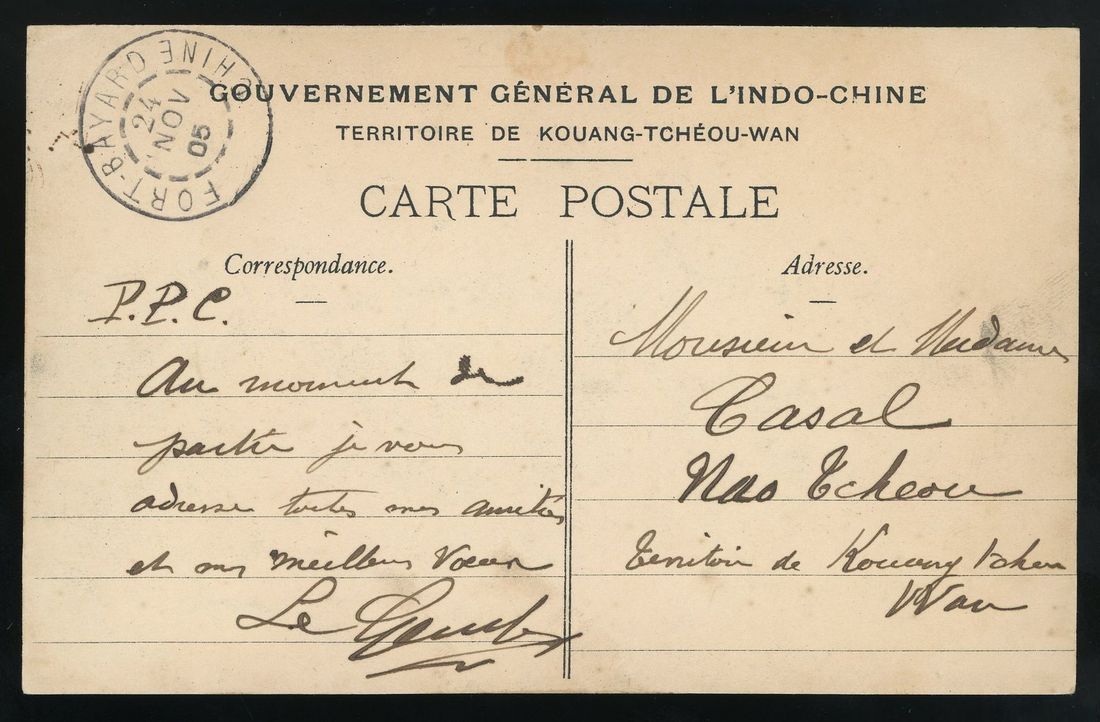 FORT-BAYARD CHINE
24
NOV
05
GOUVERNEMENT GÉNÉRAL DE L'INDO-CHINE
TERRITOIRE DE KOUANG-TCHÉOU-WAN
CARTE POSTALE
Correspondance.
P.P.C.
Au moment de
partir je vous
adresse toutes mes amitiés
et mes meilleurs vœux
Le
Adresse.
Monsieur et Madame
Casal
Nao Tcheou
Territoire de Kouang Tcheou
Wan